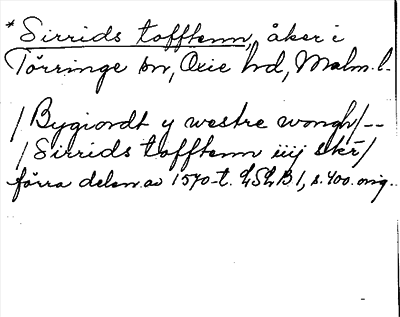 *Sirrids tofftenn, åker i
Törringe sn, Oxie hd, Malm. l.
/Bygiordt y westre wongh/--
/Sirrids tofftenn iiij skr/
förra delen av 1570-t. LSLB1, s. 400. orig.